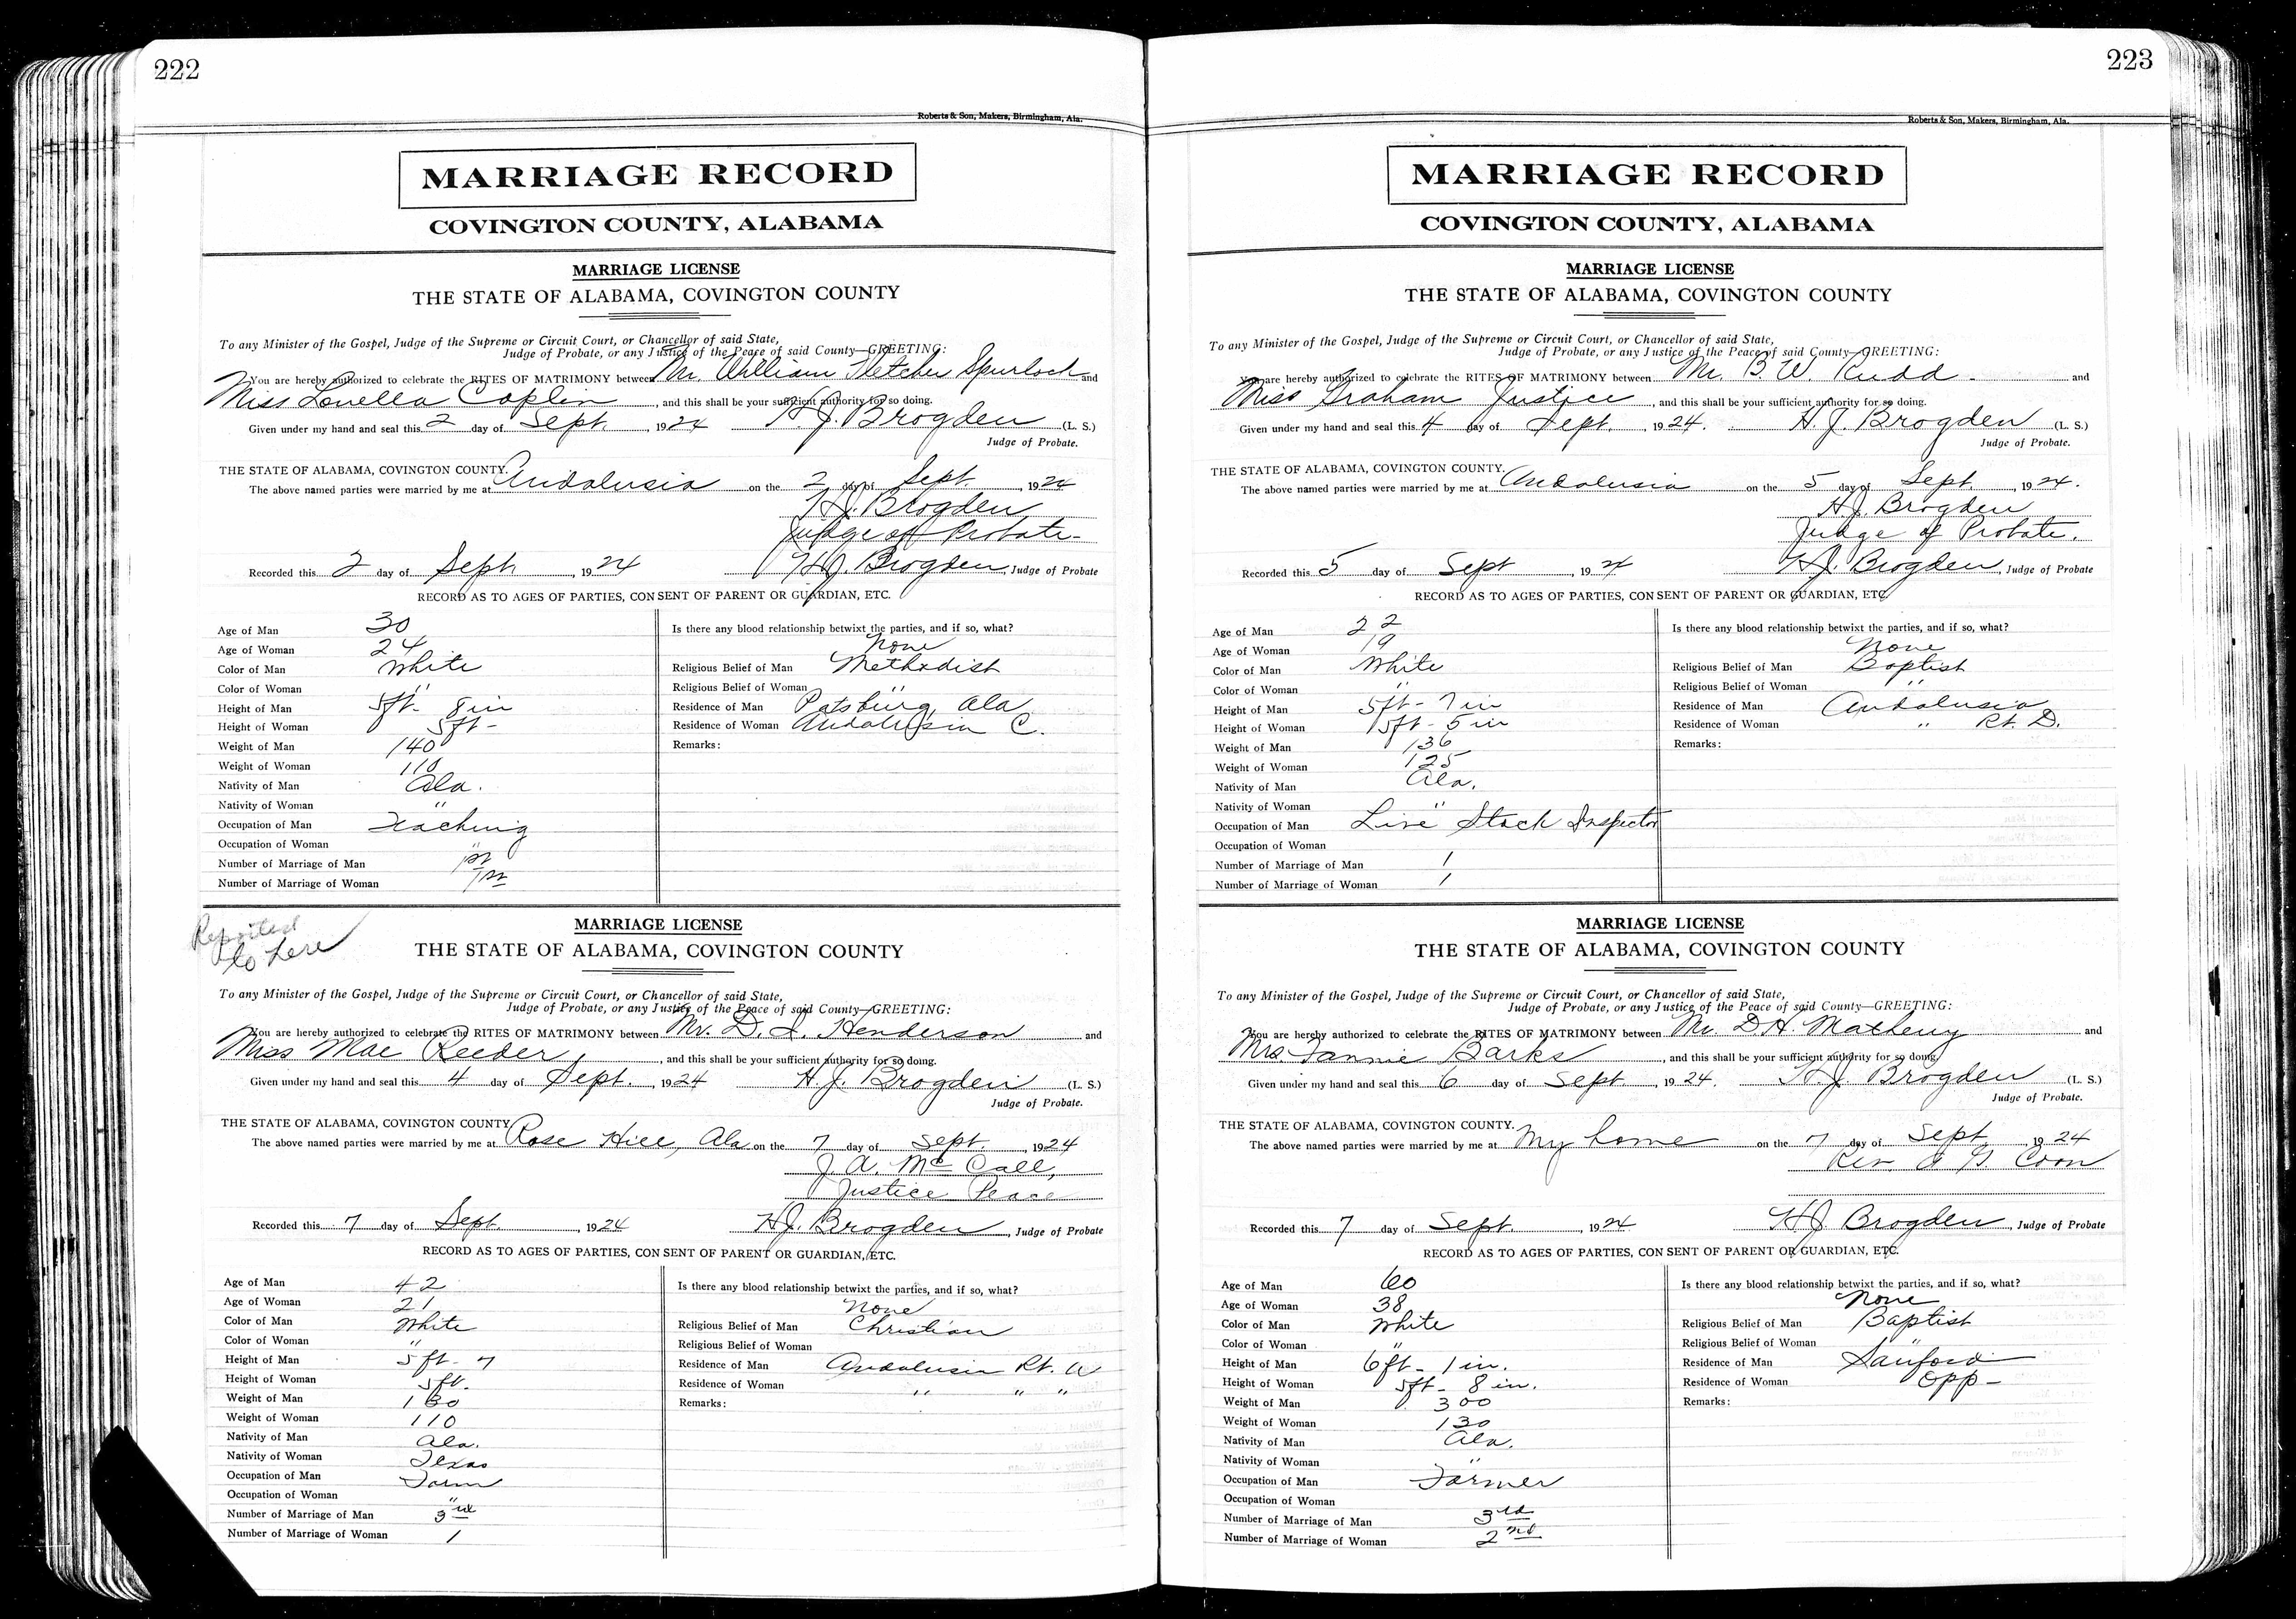 222
Roberts & Son, Makers, Birmingham, Ala.
MARRIAGE RECORD
COVINGTON COUNTY, ALABAMA
MARRIAGE LICENSE
THE STATE OF ALABAMA, COVINGTON COUNTY
To any Minister of the Gospel, Judge of the Supreme or Circuit Court, or Chancellor of said State,
Judge of Probate, or any Justice of the Peace of said County—GREETING:
You are hereby authorized to celebrate the RITES OF MATRIMONY between Mr. William Fletcher Spurlock and
Miss Louella Coplen, and this shall be your sufficient authority for so doing.
Given under my hand and seal this 2 day of Sept. 1924 H. J. Brogden (L. S.)
Judge of Probate.
THE STATE OF ALABAMA, COVINGTON COUNTY.
The above named parties were married by me at Andalusia on the 2 day of Sept. 1924
H. J. Brogden
Judge of Probate
Recorded this 2 day of Sept, 1924 H. J. Brogden, Judge of Probate
RECORD AS TO AGES OF PARTIES, CONSENT OF PARENT OR GUARDIAN, ETC.
Age of Man 30
Age of Woman 24
Color of Man White
Color of Woman "
Height of Man 5ft. 8 in
Height of Woman 5ft -
Weight of Man 140
Weight of Woman 110
Nativity of Man Ala.
Nativity of Woman "
Occupation of Man Teaching
Occupation of Woman "
Number of Marriage of Man 1st
Number of Marriage of Woman 1st
Is there any blood relationship betwixt the parties, and if so, what?
None
Religious Belief of Man Methodist
Religious Belief of Woman "
Residence of Man Patsburg, Ala
Residence of Woman Andalusia C.
Remarks:
Reported
to here
MARRIAGE LICENSE
THE STATE OF ALABAMA, COVINGTON COUNTY
To any Minister of the Gospel, Judge of the Supreme or Circuit Court, or Chancellor of said State,
Judge of Probate, or any Justice of the Peace of said County—GREETING:
You are hereby authorized to celebrate the RITES OF MATRIMONY between Mr. D. I. Henderson and
Miss Mae Reeder, and this shall be your sufficient authority for so doing.
Given under my hand and seal this 4 day of Sept. 1924 H. J. Brogden (L. S.)
Judge of Probate.
THE STATE OF ALABAMA, COVINGTON COUNTY.
The above named parties were married by me at Rose Hill, Ala on the 7 day of Sept, 1924
J. A. McCall,
Justice Peace
Recorded this 7 day of Sept., 1924 H. J. Brogden, Judge of Probate
RECORD AS TO AGES OF PARTIES, CONSENT OF PARENT OR GUARDIAN, ETC.
Age of Man 42
Age of Woman 21
Color of Man White
Color of Woman "
Height of Man 5 ft - 7
Height of Woman 5ft.
Weight of Man
Weight of Woman 110
Nativity of Man Ala.
Nativity of Woman Texas
Occupation of Man Farm
Occupation of Woman "
Number of Marriage of Man 3rd
Number of Marriage of Woman 1
Is there any blood relationship betwixt the parties, and if so, what?
None
Religious Belief of Man Christian
Religious Belief of Woman
Residence of Man Andalusia Rt.
Residence of Woman " " "
Remarks:
223
Roberts & Son, Makers, Birmingham, Ala.
MARRIAGE RECORD
COVINGTON COUNTY, ALABAMA
MARRIAGE LICENSE
THE STATE OF ALABAMA, COVINGTON COUNTY
To any Minister of the Gospel, Judge of the Supreme or Circuit Court, or Chancellor of said State,
Judge of Probate, or any Justice of the Peace of said County—GREETING:
You are hereby authorized to celebrate the RITES OF MATRIMONY between Mr. B. W. Rudd. and
Miss Graham Justice, and this shall be your sufficient authority for so doing.
Given under my hand and seal this 4 day of Sept. 1924. H. J. Brogden (L. S.)
Judge of Probate.
THE STATE OF ALABAMA, COVINGTON COUNTY.
The above named parties were married by me at Andalusia on the 5 day of Sept., 1924.
H. J. Brogden
Judge of Probate.
Recorded this 5 day of Sept, 1924 H. J. Brogden, Judge of Probate
RECORD AS TO AGES OF PARTIES, CONSENT OF PARENT OR GUARDIAN, ETC.
Age of Man 22
Age of Woman 19
Color of Man White
Color of Woman "
Height of Man 5ft - 7 in
Height of Woman 5ft - 5 in
Weight of Man 136
Weight of Woman 125
Nativity of Man Ala.
Nativity of Woman "
Occupation of Man Live Stock Inspector
Occupation of Woman
Number of Marriage of Man 1
Number of Marriage of Woman 1
Is there any blood relationship betwixt the parties, and if so, what?
None
Religious Belief of Man Baptist
Religious Belief of Woman "
Residence of Man Andalusia
Residence of Woman " Rt. D.
Remarks:
MARRIAGE LICENSE
THE STATE OF ALABAMA, COVINGTON COUNTY
To any Minister of the Gospel, Judge of the Supreme or Circuit Court, or Chancellor of said State,
Judge of Probate, or any Justice of the Peace of said County—GREETING:
You are hereby authorized to celebrate the RITES OF MATRIMONY between Mr. D. H. Matheny and
Mrs. Fannie Barks, and this shall be your sufficient authority for so doing.
Given under my hand and seal this 6 day of Sept, 1924. H. J. Brogden (L. S.)
Judge of Probate.
THE STATE OF ALABAMA, COVINGTON COUNTY.
The above named parties were married by me at My home on the 7 day of Sept, 1924
Rev. G. Coon
Recorded this 7 day of Sept., 1924 H. J. Brogden, Judge of Probate
RECORD AS TO AGES OF PARTIES, CONSENT OF PARENT OR GUARDIAN, ETC.
Age of Man 60
Age of Woman 38
Color of Man White
Color of Woman "
Height of Man 6ft - 1 in.
Height of Woman 5ft - 8 in.
Weight of Man 300
Weight of Woman 130
Nativity of Man Ala.
Nativity of Woman "
Occupation of Man Farmer
Occupation of Woman
Number of Marriage of Man 3rd
Number of Marriage of Woman 2nd
Is there any blood relationship betwixt the parties, and if so, what?
None
Religious Belief of Man Baptist
Religious Belief of Woman "
Residence of Man Sanford
Residence of Woman Opp -
Remarks: